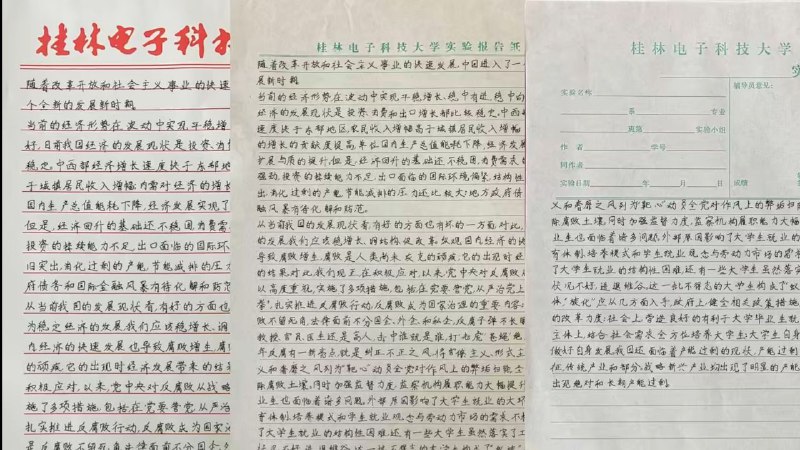 桂林电子科
随着改革开放和社会主义事业的快速
个全新的发展新时期
当前的经济形势在波动中实现平稳增长
好,目前我国经济的发展现状是投资为
稳定,中西部经济增长速度快于东部地
于城镇居民收入增幅内需对经济的增长
国内生产总值能耗下降,经济发展实现了
但是,经济回升的基础还不稳固内需
投资的持续能力不足,出口面临的国际环
旧突出消化过剩的产能节能减排的压
府债务和国际金融风暴有待化解和防范
从当前我国的发展现状看,有好的方面也
为稳定经济的发展我们应该稳增长、调
内经济的快速发展也导致腐败增生,腐
的顽疾,它的出现时经济发展带来的结
积极应对,以来,党中央对反腐败从战略
施了多项措施,包括在党要管党、从严治
扎实推进反腐败行动,反腐败成为国家
是反腐不留死角,去律面前不分国企、外
桂林电子科技大学实验报告纸
随着改革开放和社会主义事业的快速发展,中国进入了一
展新时期
当前的经济形势在波动中实现平稳增长、稳中有进、稳中向
国经济的发展现状是投资为费和出口增长都比较稳定,中西
速度快于东部地区,农民收入增幅高于城镇居民收入增幅
的增长的贡献度提高,单位国内生产总值能耗下降,经济发展
扩展与质的提升,但是,经济回升的基础还不稳固,内费需求
强劲,投资的持续能力不足,出口面临的国际环境偏紧,结构性
出,消化过剩的产能,节能减排的压力还比较大,地方政府债
融风暴有待化解和防范。
从当前我国的发展现状看,有好的方面也有坏的一方面,对此,
的发展我们应该稳增长、调结构、促改革,发现国内经济的快
导致腐败增生,腐败是人类尚未攻克的顽疾,它的出现时经
的结果,对此我们现正在积极应对,以来,党中央对反腐败从
以高度重视,实施了多项措施,包括在党要管党、从严治党上
拳",扎实推进反腐败行动,反腐败成为国家治理的重要内容
败不留死角,去律面前不分国企、外企和私企,反腐子弹不长眼
教授、官员、医生还是高人,去寸谁就是谁,打"老
年反腐有一新看点就是纠正不正之风,将官僚主义、形式主
义和奢靡之风列为靶心动员全党对作风上的弊端扫驱
际腐败土壤,同时加强监督力度,监察机构履职能力大幅提升
业生也面临着诸多问题,外部原因影响了大学生就业的
育体制、培养模式和学生就业观念与劳动力市场的需求不
了大学生就业的结构性困难,还有一些大学生虽然落实了工
桂林电子科技大学
实
实验名称
辅导员意见:
系
专业
班第
实验小组
作 者
学号
同作者
实验日期
年
月
日
成绩
义和奢靡之风列为靶心动员全党对作风上的弊端扫
际腐败土壤,同时加强监督力度,监察机构履职能力大幅
业生也面临着诸多问题,外部原因影响了大学生就业的
有体制、培养模式和学生就业观念与劳动力市场的需
了大学生就业的结构性困难,还有一些大学生虽然落实
状况不好,进退维谷,这一批不得志的大学生构成了"蚁
体"蚁化"应从几方面入手,政府上,健全相关政策措施,
的改革力度;社会上,营造良好的有利于大学毕业生就业
主体上,结合社会需求全方位培养大学生;大学生自身
做好自身发展,我国还面临着产能过剩的现状,产能过剩
征,传统产业和部分,战略新兴产业均出现了明显的产能
出现绝对和长期产能过剩.